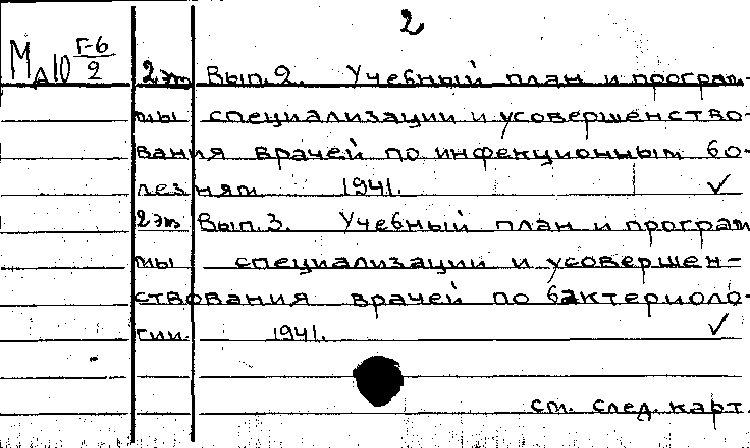 2
МД10 Г-6/2
2 эт Вып. 2. Учебный план и програм-
мы специализации и усовершенство-
вания врачей по инфекционным бо-
лезням 1941. ✓
2 эт Вып. 3. Учебный план и програм
мы специализации и усовершен-
ствования врачей по бактериоло-
гии. 1941. ✓
см. след. карт.